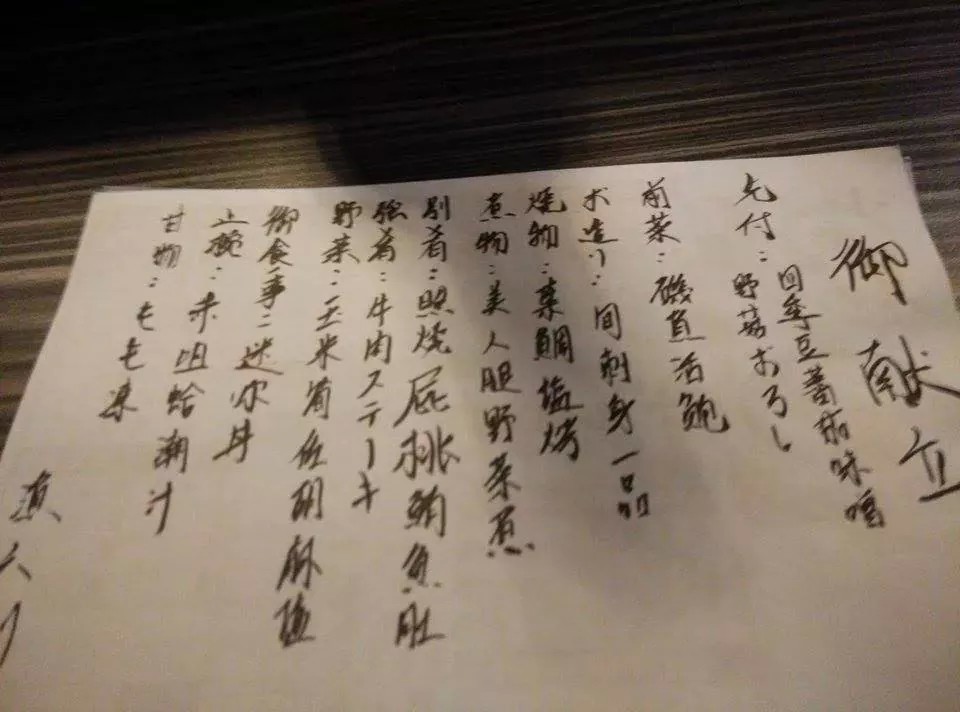 御献立
先付：四季豆蕃茄味噌
野蒜おろし
前菜：磯煮活鮑
お造り：旬刺身一品
焼物：棗鯛塩烤
煮物：美人腿野菜煮
別肴：照焼屁桃鮪魚肚
強肴：牛肉ステーキ
野菜：玉米荀佐胡麻塩
御食事：迷你丼
止椀：味咀蛤潮汁
甘物：毛毛凍